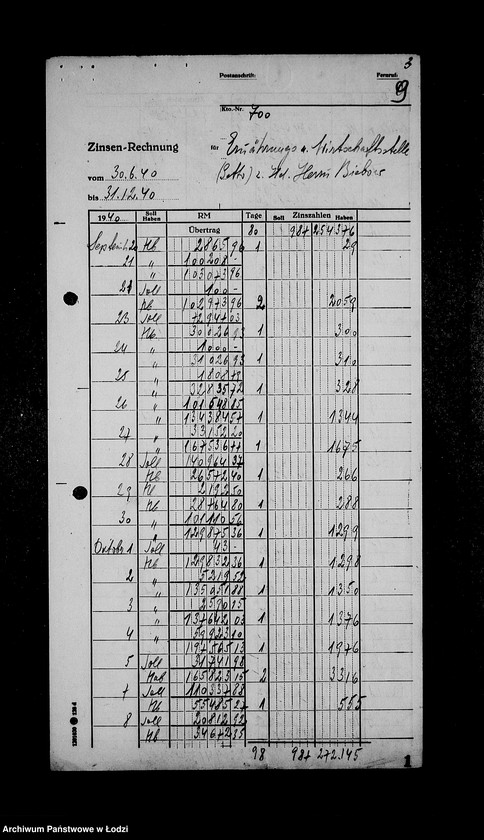 3
Postanschrift:
Fernruf:
19
Kto.-Nr. 700
Zinsen-Rechnung
für Ernährungs u. Wirtschaftsstelle
(Getto) z. Hd. Herrn Biebow
vom 30.6.40
bis 31.12.40
1940 Soll Haben RM Tage Soll Zinszahlen Haben
Übertrag 80 987 254376
Septemb. 20 Hb 2865 96 1 29
21 " 100208 -
" 103073 96
21 Soll 100 -
Hb 102973 96 2 2059
23 Soll 72947 03
Hb 30026 93 1 300
24 " 1000 -
" 31026 93 1 310
25 " 1808 79
" 32835 72 1 328
26 " 101548 85
" 134384 57 1 1344
27 " 33152 20
" 167536 77 1 1675
28 Soll 140964 37
Hb 26572 40 1 266
29 Hb 2192 50
Hb 28764 80 1 288
30 " 101110 56
" 129875 36 1 1299
Oktober 1 Soll 43 -
Hb 129832 36 1 1298
2 " 5219 52
" 135051 88 1 1350
3 " 2590 15
" 137642 03 1 1376
4 " 59923 10
" 197565 13 1 1976
5 Soll 31741 98
Hab 165823 15 2 3316
7 Soll 110337 88
Hb 55485 27 1 555
8 Soll 20812 92
Hb 34672 35
98 987 272145
1
Archiwum Państwowe w Łodzi